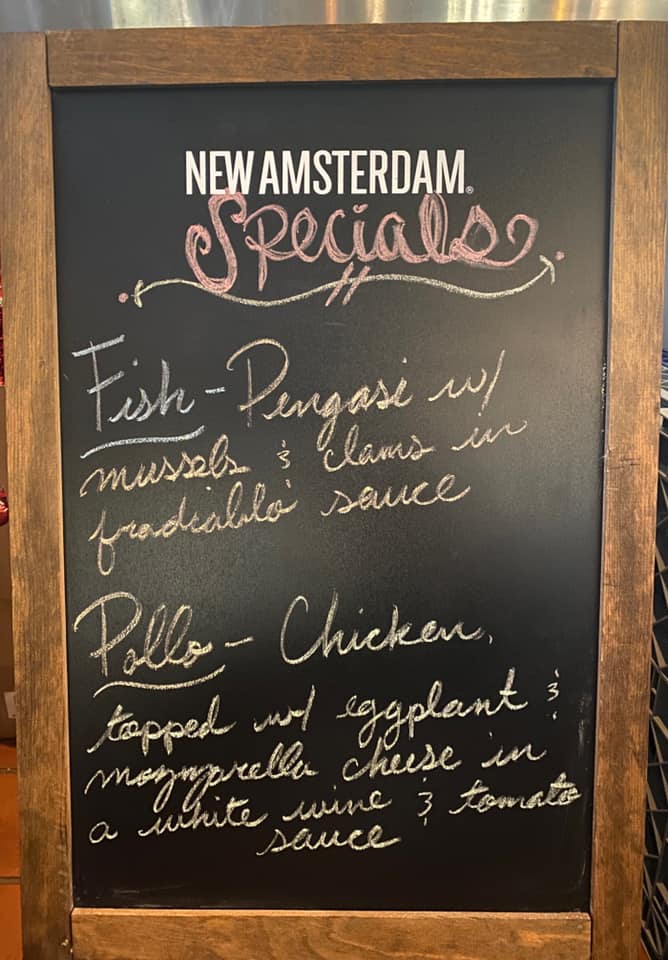 NEW AMSTERDAM®
Specials
Fish - Pengasi w/
mussels & clams in
fradiablo sauce
Pollo - Chicken,
topped w/ eggplant &
mozzarella cheese in
a white wine & tomato
sauce